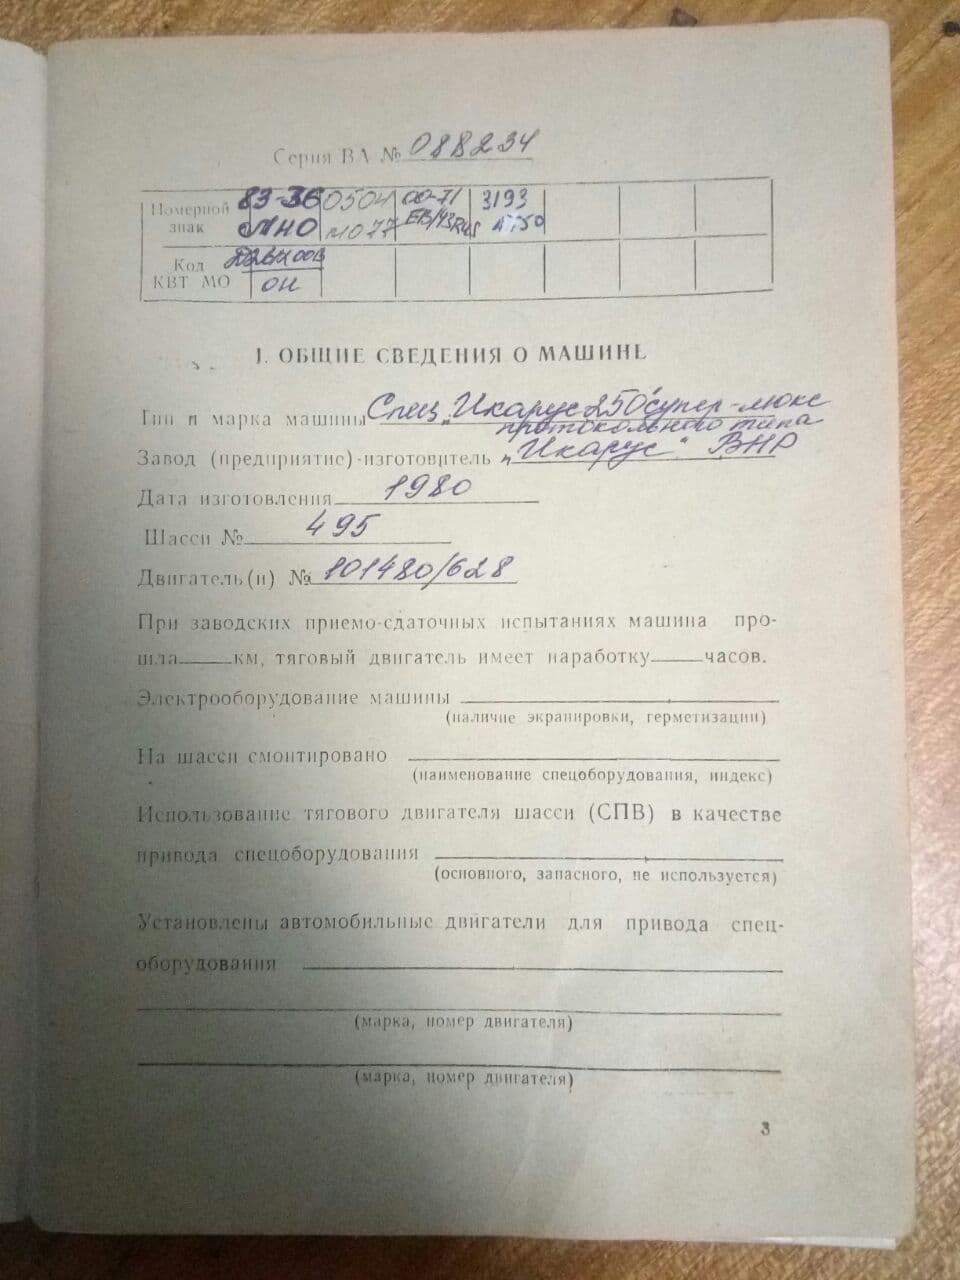 Серия ВА № 088234
Номерной знак 83-36 ЛНО 0504 МО77 00-71 ЕВ/43RUS 3193
Код КВТ МО ОН
1. ОБЩИЕ СВЕДЕНИЯ О МАШИНЕ
Тип и марка машины Спец. „Икарус 250" супер-люкс
протокольного типа
Завод (предприятие)-изготовитель „Икарус" ВНР
Дата изготовления 1980
Шасси № 495
Двигатель(и) № 101480/628
При заводских приемо-сдаточных испытаниях машина про-
шла км, тяговый двигатель имеет наработку часов.
Электрооборудование машины
(наличие экранировки, герметизации)
На шасси смонтировано
(наименование спецоборудования, индекс)
Использование тягового двигателя шасси (СПВ) в качестве
привода спецоборудования
(основного, запасного, не используется)
Установлены автомобильные двигатели для привода спец-
оборудования
(марка, номер двигателя)
(марка, номер двигателя)
3